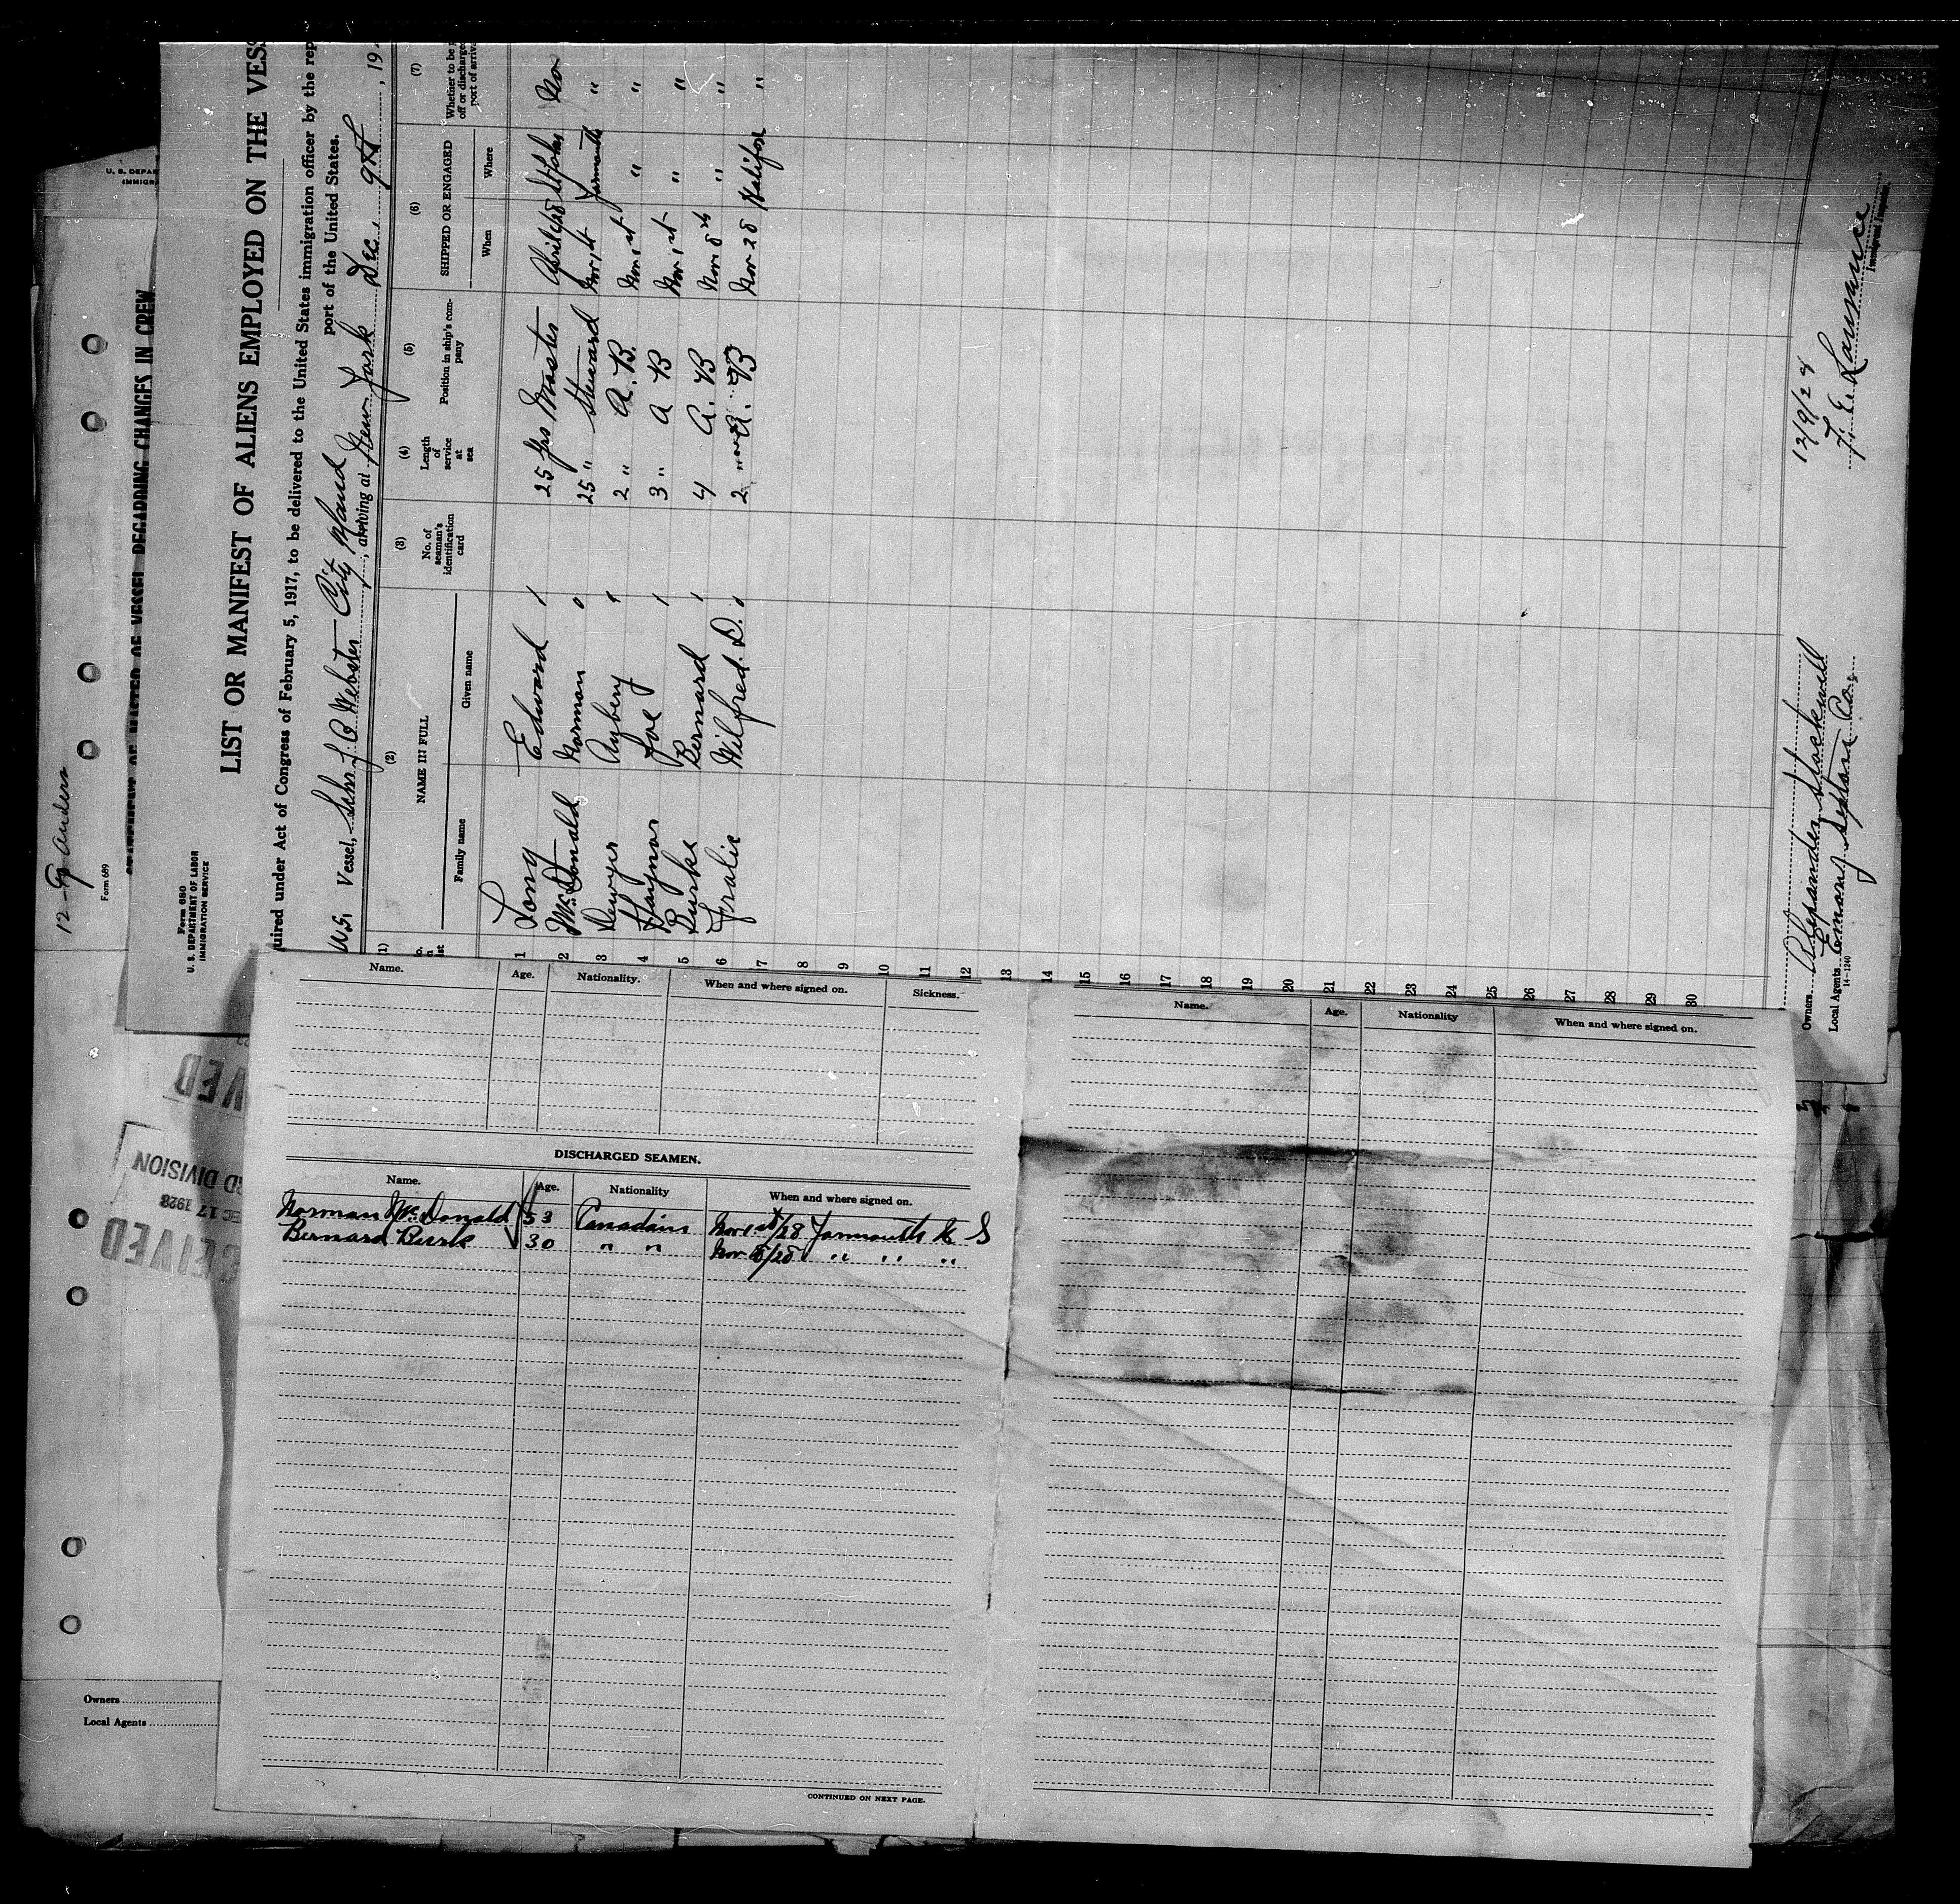 12-
Form 689
U. S. DEPAR
IMMIGRA
STATEMENT OF MASTER OF VESSEL REGARDING CHANGES IN CREW
Form 680
U. S. DEPARTMENT OF LABOR
IMMIGRATION SERVICE
LIST OR MANIFEST OF ALIENS EMPLOYED ON THE VESS
uired under Act of Congress of February 5, 1917, to be delivered to the United States immigration officer by the rep
port of the United States.
Vessel, Schr. Webster City Island, arriving at New York Dec. 9th, 19
(1) (2) (3) (4) (5) (6) (7)
NAME IN FULL
Family name Given name
No. of seaman's identification card
Length of service at sea
Position in ship's company
SHIPPED OR ENGAGED
When Where
Whether to be p
off or discharged
port of arrival
1 Long Edward 25 yrs Master April St Johns No
2 McDonald Norman 25 " Steward Nov 1st Yarmouth "
3 Dewyer 2 " A. B. Nov 1st " "
4 Haynor Joe 3 " A B Nov 1st " "
5 Burke Bernard 4 A. B Nov 8th " "
6 Fralic Wilfred. D. 2 " A. B Nov 28 Halifax "
7
8
9
10
11
12
13
14
15
16
17
18
19
20
21
22
23
24
25
26
27
28
29
30
12/9/28
Owners Stockwell
Local Agents Co.
14-1240
Immigrant Inspector
Name. Age. Nationality. When and where signed on. Sickness.
DISCHARGED SEAMEN.
Name. Age. Nationality When and where signed on.
Norman McDonald 53 Canadain Nov 1st/28 Yarmouth N S
Bernard Burk 30 " " Nov 8/28 " " "
CONTINUED ON NEXT PAGE.
Name. Age. Nationality When and where signed on.
VED
RD DIVISION
EC 17 1928
CEIVED
Owners
Local Agents